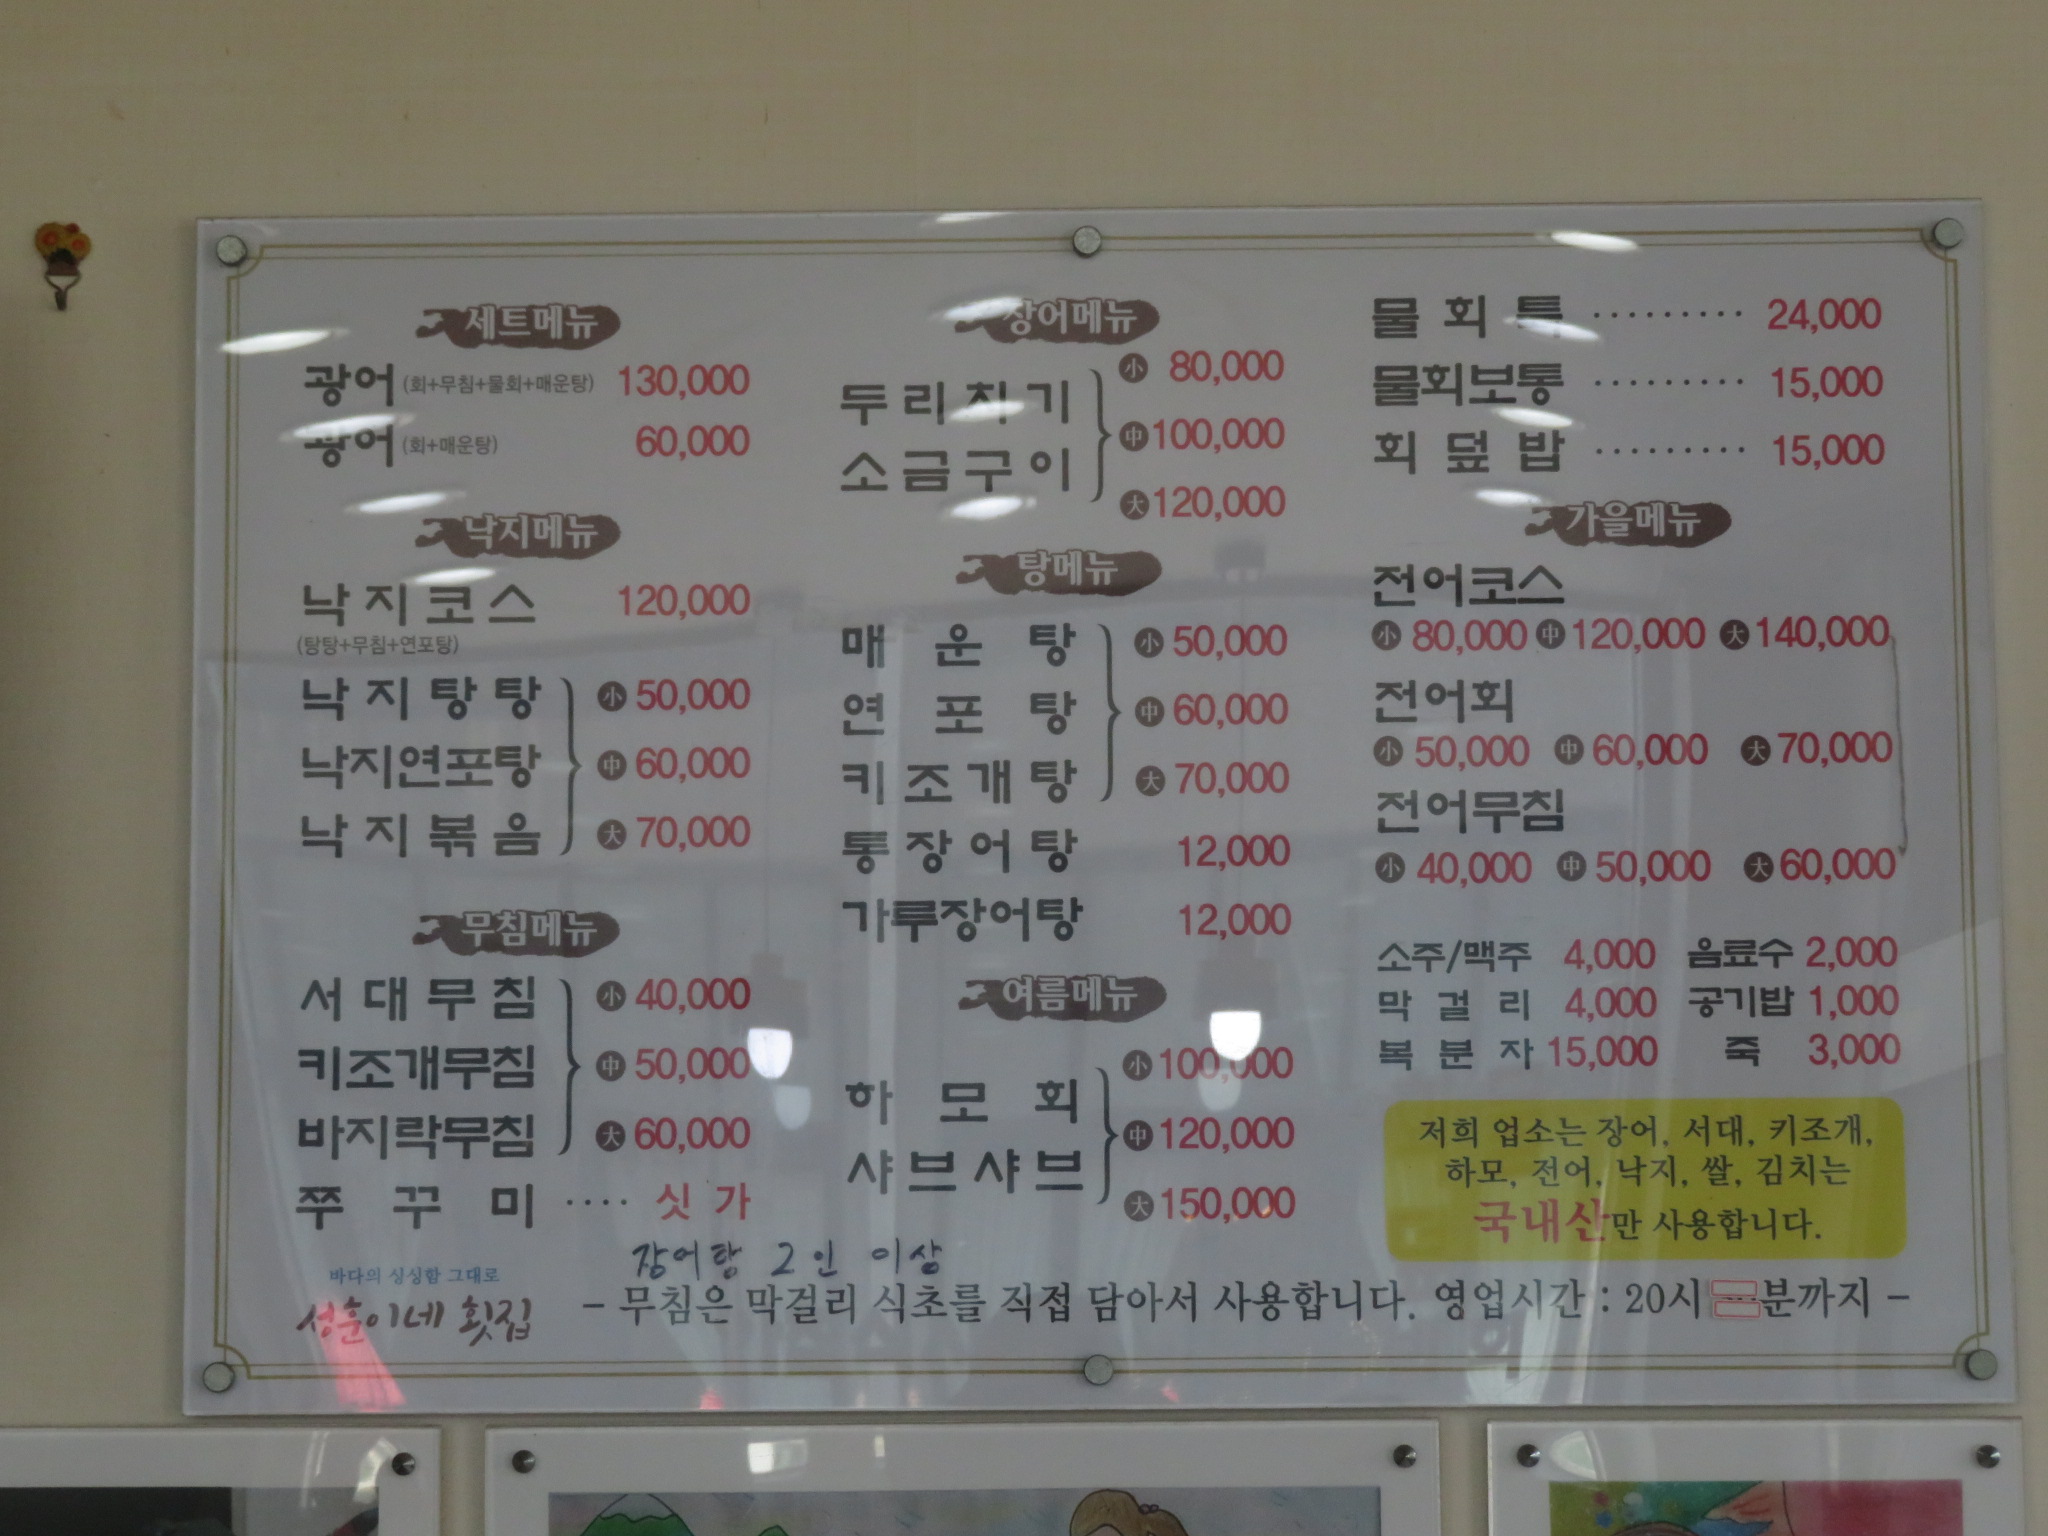 세트메뉴
광어 (회+무침+물회+매운탕) 130,000
광어 (회+매운탕) 60,000
낙지메뉴
낙지코스 120,000
(탕탕+무침+연포탕)
낙지탕탕 小 50,000
낙지연포탕 中 60,000
낙지볶음 大 70,000
무침메뉴
서대무침 小 40,000
키조개무침 中 50,000
바지락무침 大 60,000
쭈꾸미 ···· 싯가
바다의 싱싱함 그대로
성훈이네 횟집
장어메뉴
小 80,000
두리치기
中 100,000
소금구이
大 120,000
탕메뉴
매운탕 小 50,000
연포탕 中 60,000
키조개탕 大 70,000
통장어탕 12,000
가루장어탕 12,000
여름메뉴
小 100,000
하모회
中 120,000
샤브샤브
大 150,000
물회특 ········· 24,000
물회보통 ········· 15,000
회덮밥 ········· 15,000
가을메뉴
전어코스
小 80,000 中 120,000 大 140,000
전어회
小 50,000 中 60,000 大 70,000
전어무침
小 40,000 中 50,000 大 60,000
소주/맥주 4,000 음료수 2,000
막걸리 4,000 공기밥 1,000
복분자 15,000 죽 3,000
저희 업소는 장어, 서대, 키조개,
하모, 전어, 낙지, 쌀, 김치는
국내산만 사용합니다.
장어탕 2인 이상
- 무침은 막걸리 식초를 직접 담아서 사용합니다. 영업시간 : 20시 분까지 -